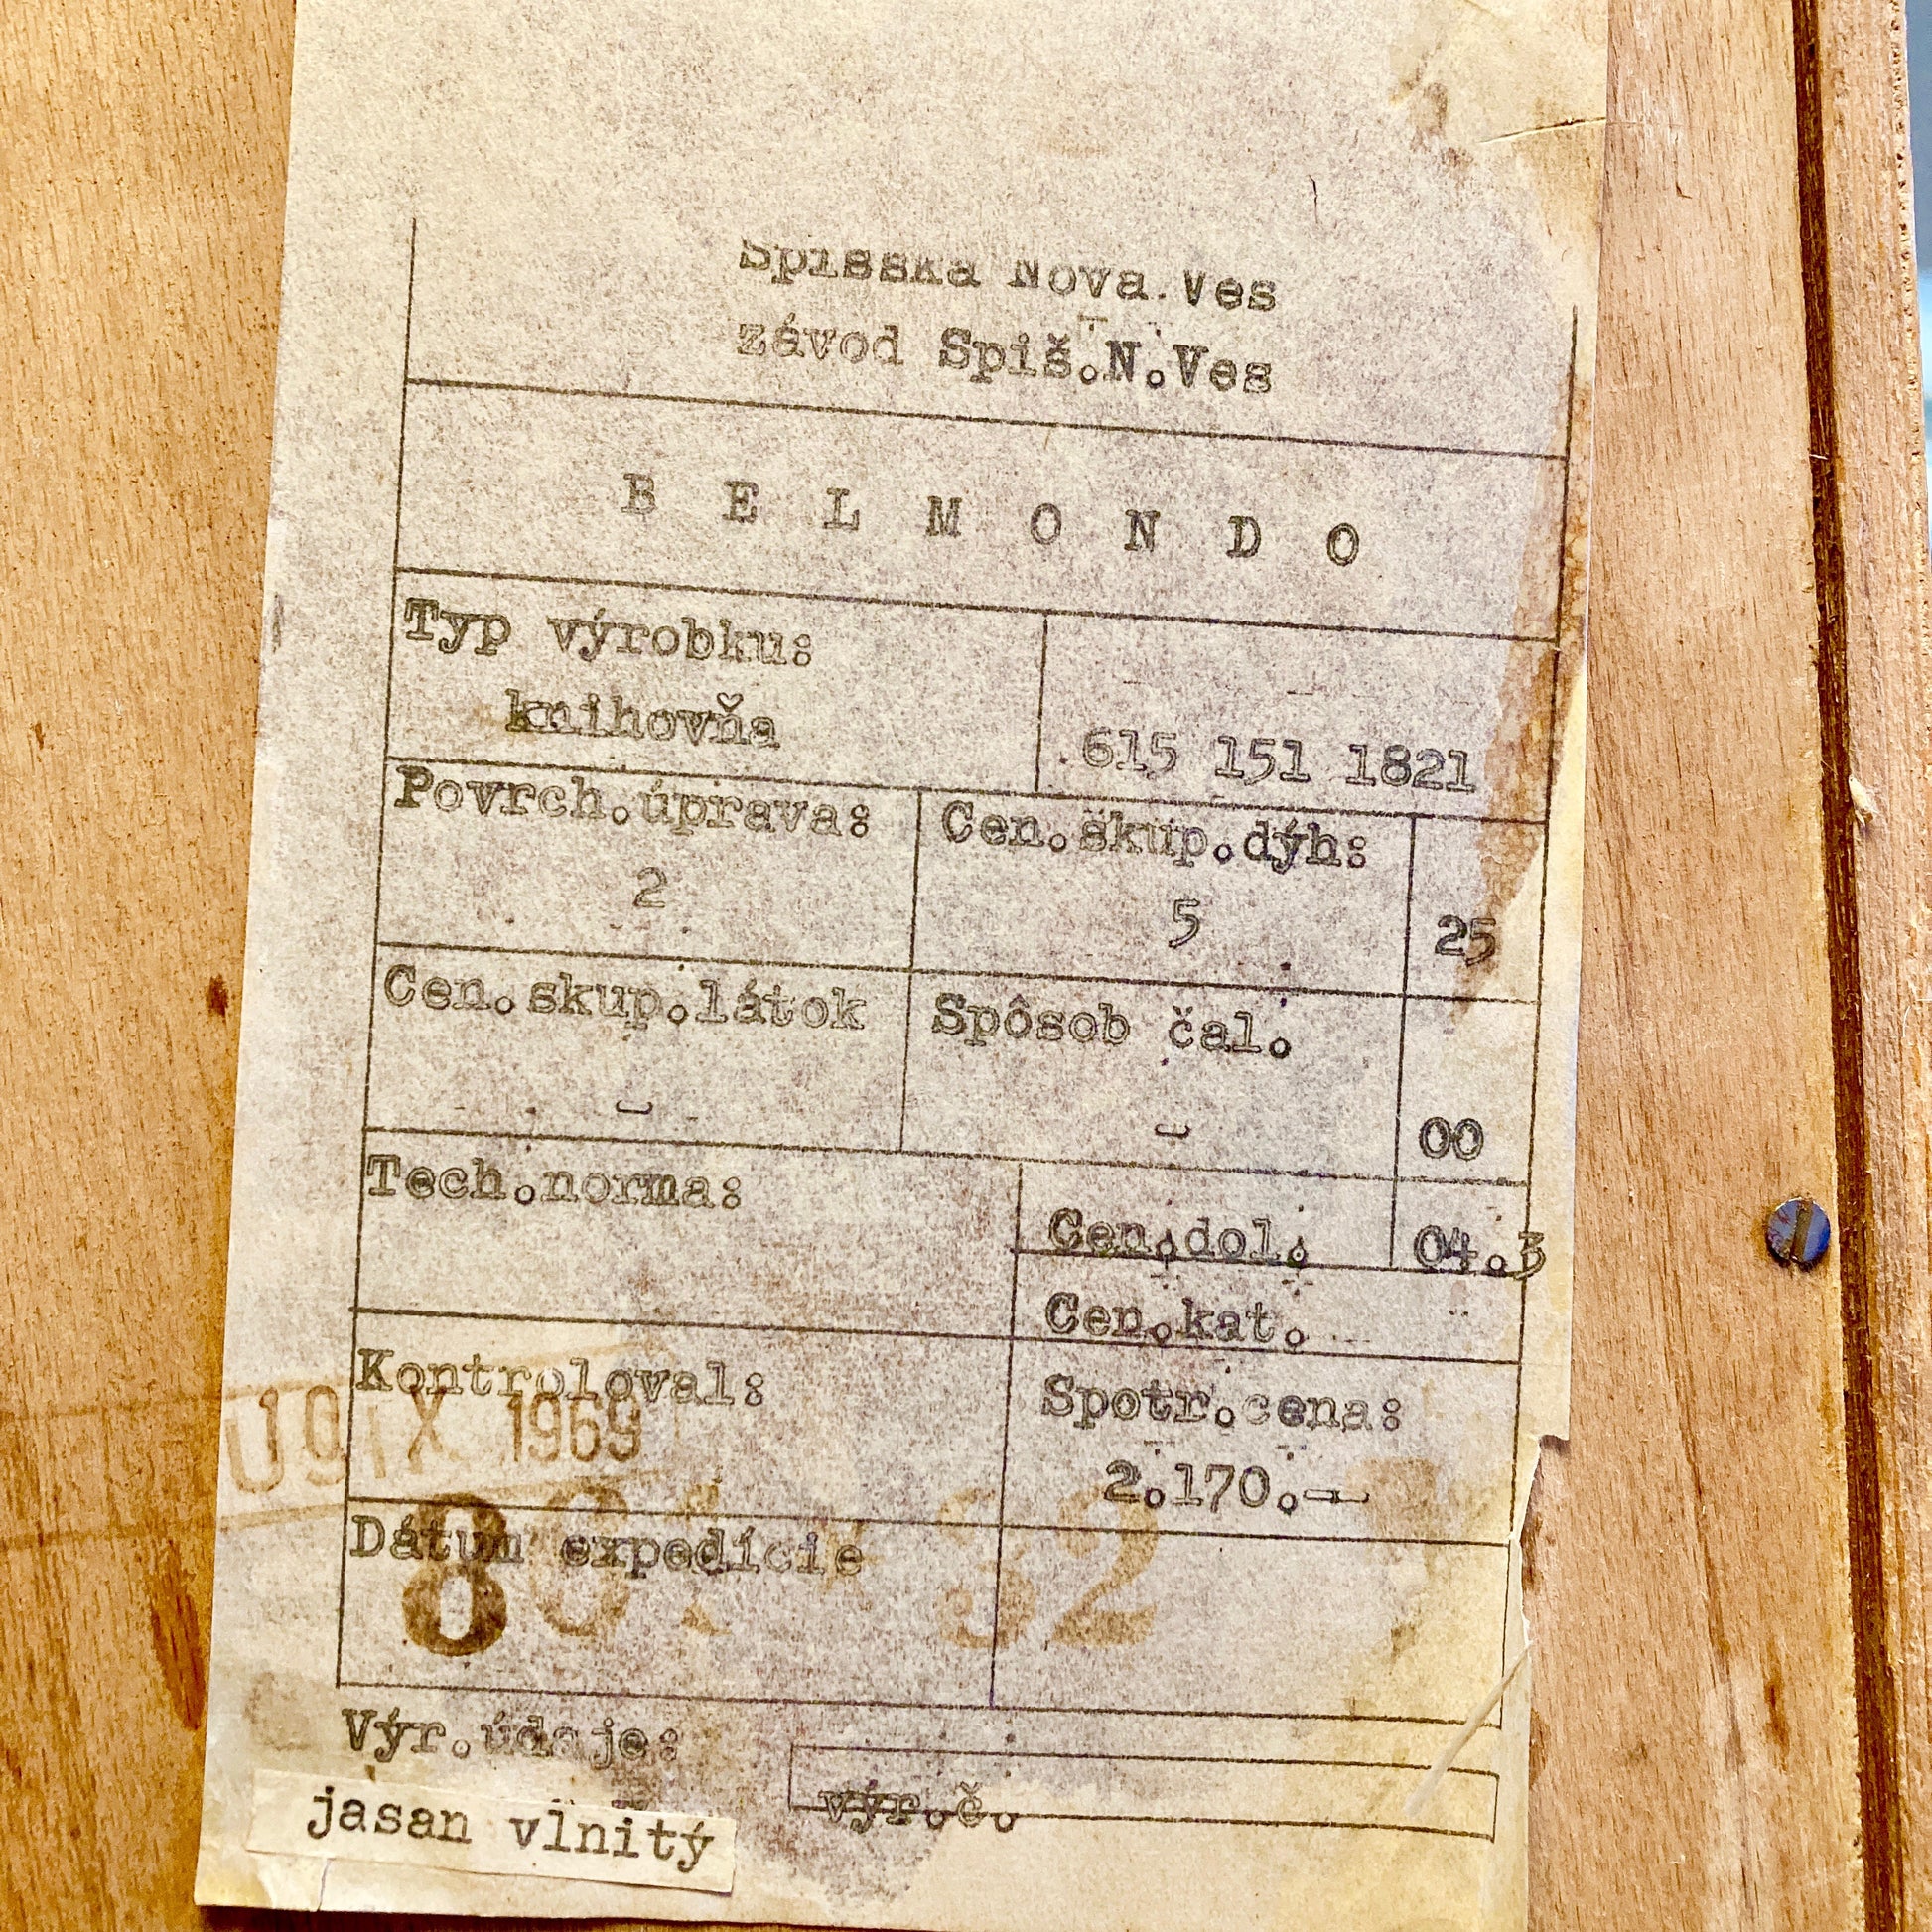 Spišská Nová Ves
závod Spiš.N.Ves
B E L M O N D O
Typ výrobku:
knihovňa
615 151 1821
Povrch.úprava:
2
Cen.skup.dýh:
5
25
Cen.skup.látok
-
Spôsob čal.
-
00
Tech.norma:
Cen.dol.
04.3
Cen.kat.
Kontroloval:
IX 1969
Spotr.cena:
2.170.-
Dátum expedície
Výr.údaje:
výr.č.
jasan vlnitý